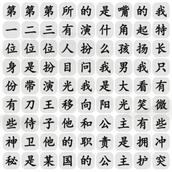 第第第所的是嘴的我
一二三有演什角起特
位位位人扮么扬长
身是扮目问我男我只
份带演光我是大看有
有刀王移向阳光笑微
些侍子他和公主有些
神卫他的职责是拥冲
秘是某国的公主护突